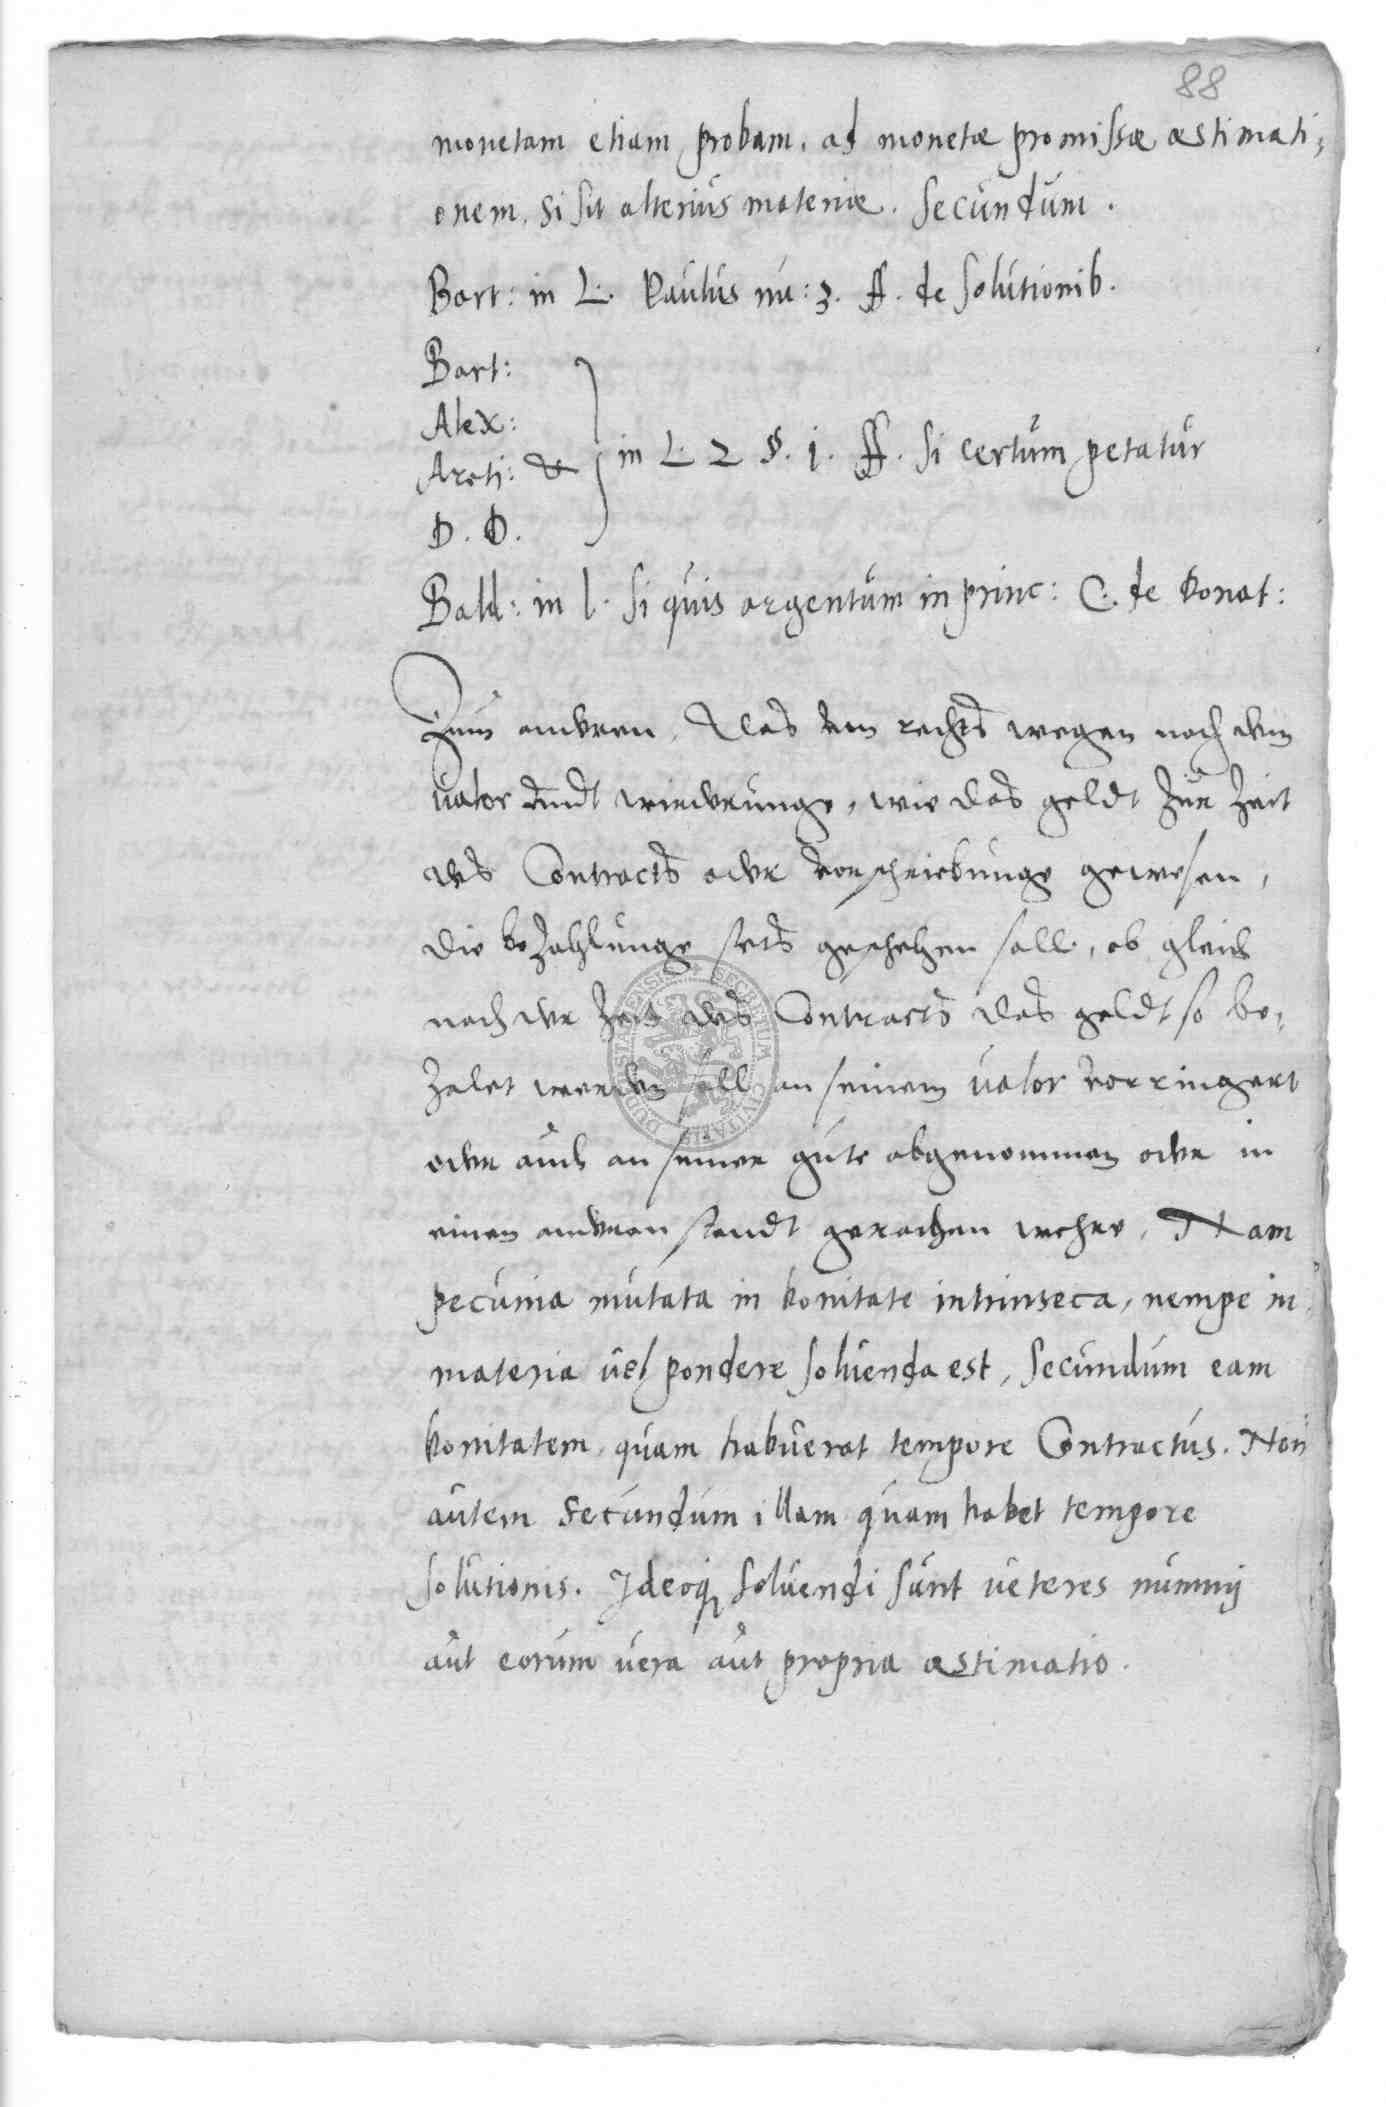 88
monetam etiam probam, ad monetæ promissæ æstimati-
onem, si sit alterius materiæ. Secundum.
Bart: in L. Paulus nu: 3. ff. de solutionib.
Bart:
Alex:
Areti: &
D. D.
in L. 2 §. 1. ff. si certum petatur
Bald: in l. si quis argentum in princ: C. de donat:
Zum anderen, Das von rechts wegen nach dem
valor vndt wirderunge, wie das geldt zur Zeit
des Contracts oder vorschriebunge gewesen,
die bezahlunge stets geschehen soll, ob gleich
nach der Zeit des Contracts das geldt so be-
zalet werden soll an seinem valor vorringert
oder auch an seiner güte abgenommen oder in
einen anderen standt gerathen wehre, Nam
pecunia mutata in bonitate intrinseca, nempe in
materia vel pondere soluenda est, secundum eam
bonitatem, quam habuerat tempore Contractus. Non
autem secundum illam quam habet tempore
solutionis. Ideoq3 soluendi sunt veteres nummij
aut eorum vera aut propria æstimatio.
SECRETUM CIVITATIS